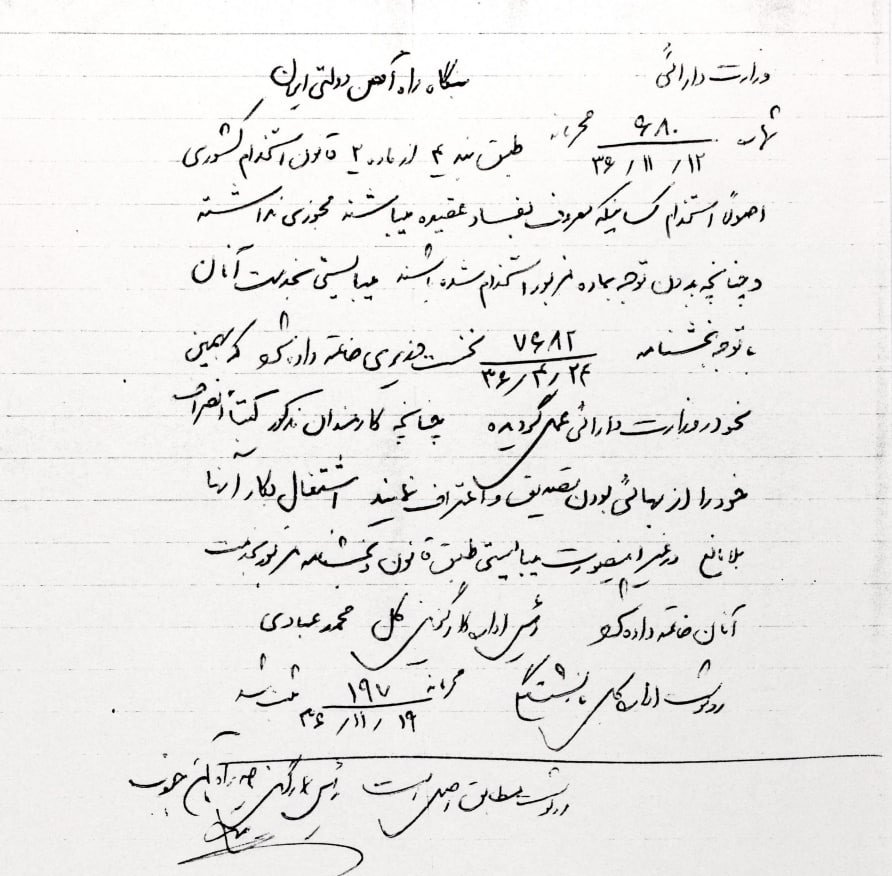 وزارت دارائی بنگاه راه آهن دولتی ایران
شماره ۶۸۰ / ۳۶/۱۱/۱۲ محرمانه طبق بند ۴ از ماده ۲ قانون استخدام کشوری
اصولاً استخدام کسانیکه معروف بفساد عقیده میباشند مجوزی نداشته
و چنانچه بدون توجه بماده مزبور استخدام شده باشند میبایستی بخدمت آنان
با توجه ببخشنامه ۷۶۸۲ / ۳۶/۴/۲۴ نخست وزیری خاتمه داده شود که بهمین
نحو در وزارت دارائی عمل گردیده چنانچه کارمندان مذکور کتباً انصراف
خود را از بهائی بودن تصدیق و اعتراف نمایند اشتغال بکار آنها
بلامانع در غیر اینصورت میبایستی طبق قانون و بخشنامه مزبور بخدمت
آنان خاتمه داده شود رئیس اداره کارگزینی کل محمد عبادی
رونوشت اداره کل بازنشستگی محرمانه ۱۹۷ / ۳۶/۱۱/۱۹ ثبت شد
رونوشت مطابق اصل است رئیس کارگزینی راه آهن جنوب